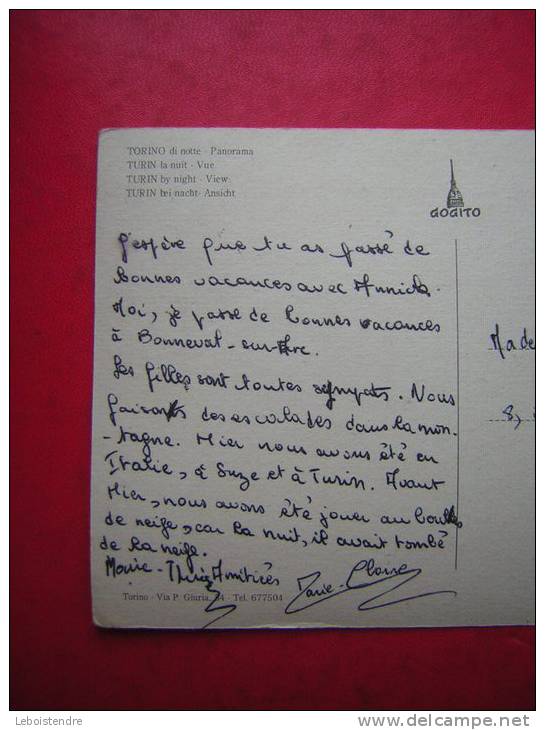 TORINO di notte - Panorama
TURIN la nuit - Vue
TURIN by night - View
TURIN bei nacht - Ansicht
GOGITO
J'espère que tu as passé de
bonnes vacances avec Annick.
Moi, je passe de bonnes vacances
à Bonneval-sur-Arc.
Les filles sont toutes sympats. Nous
faisons des escalades dans la mon-
-tagne. Hier nous avons été en
Italie, à Suze et à Turin. Avant
Hier, nous avons été jouer au boules
de neige, car la nuit, il avait tombé
de la neige.
Marie- Amitiés
Marie-
Torino - Via P. Giuria, 54 - Tel. 677504
Made
8,
Leboistendre
www.delcampe.net